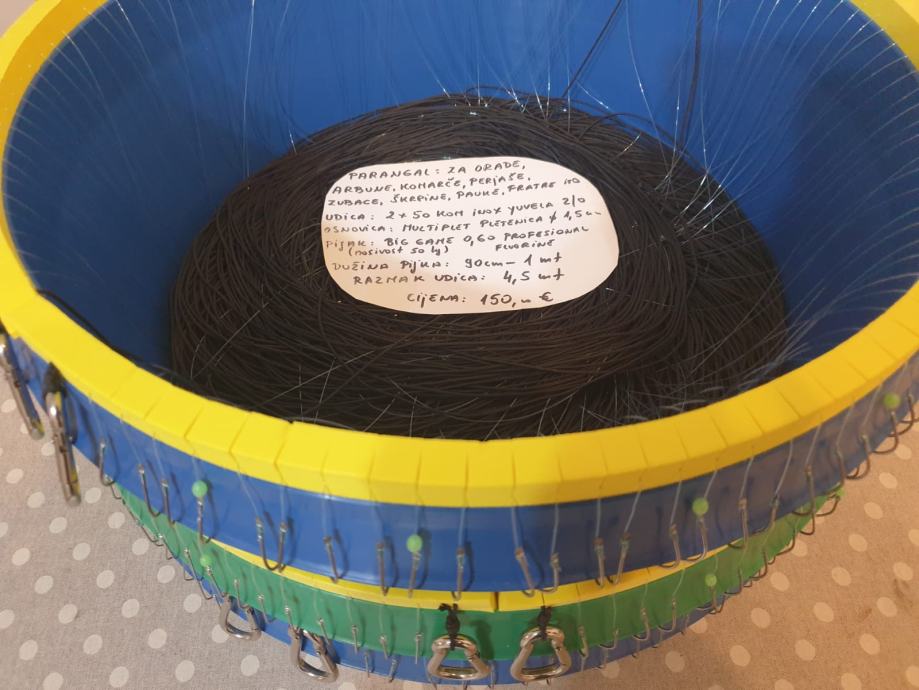 PARANGAL: ZA ORADE,
ARBUNE, KOMARČE, PERJAŠE,
ZUBACE, ŠKRPINE, PAUKE, FRATRE ITD
UDICA: 2 x 50 KOM INOX YUVELA 2/0
OSNOVICA: MULTIPLET PLETENICA ϕ 1,5
PIJAK: BIG GAME 0,60 PROFESIONAL
(nosivost 50 kg) FLUORINE
DUŽINA PIJKA: 90cm - 1 mt
RAZMAK UDICA: 4,5 mt
CIJENA: 150,00 €